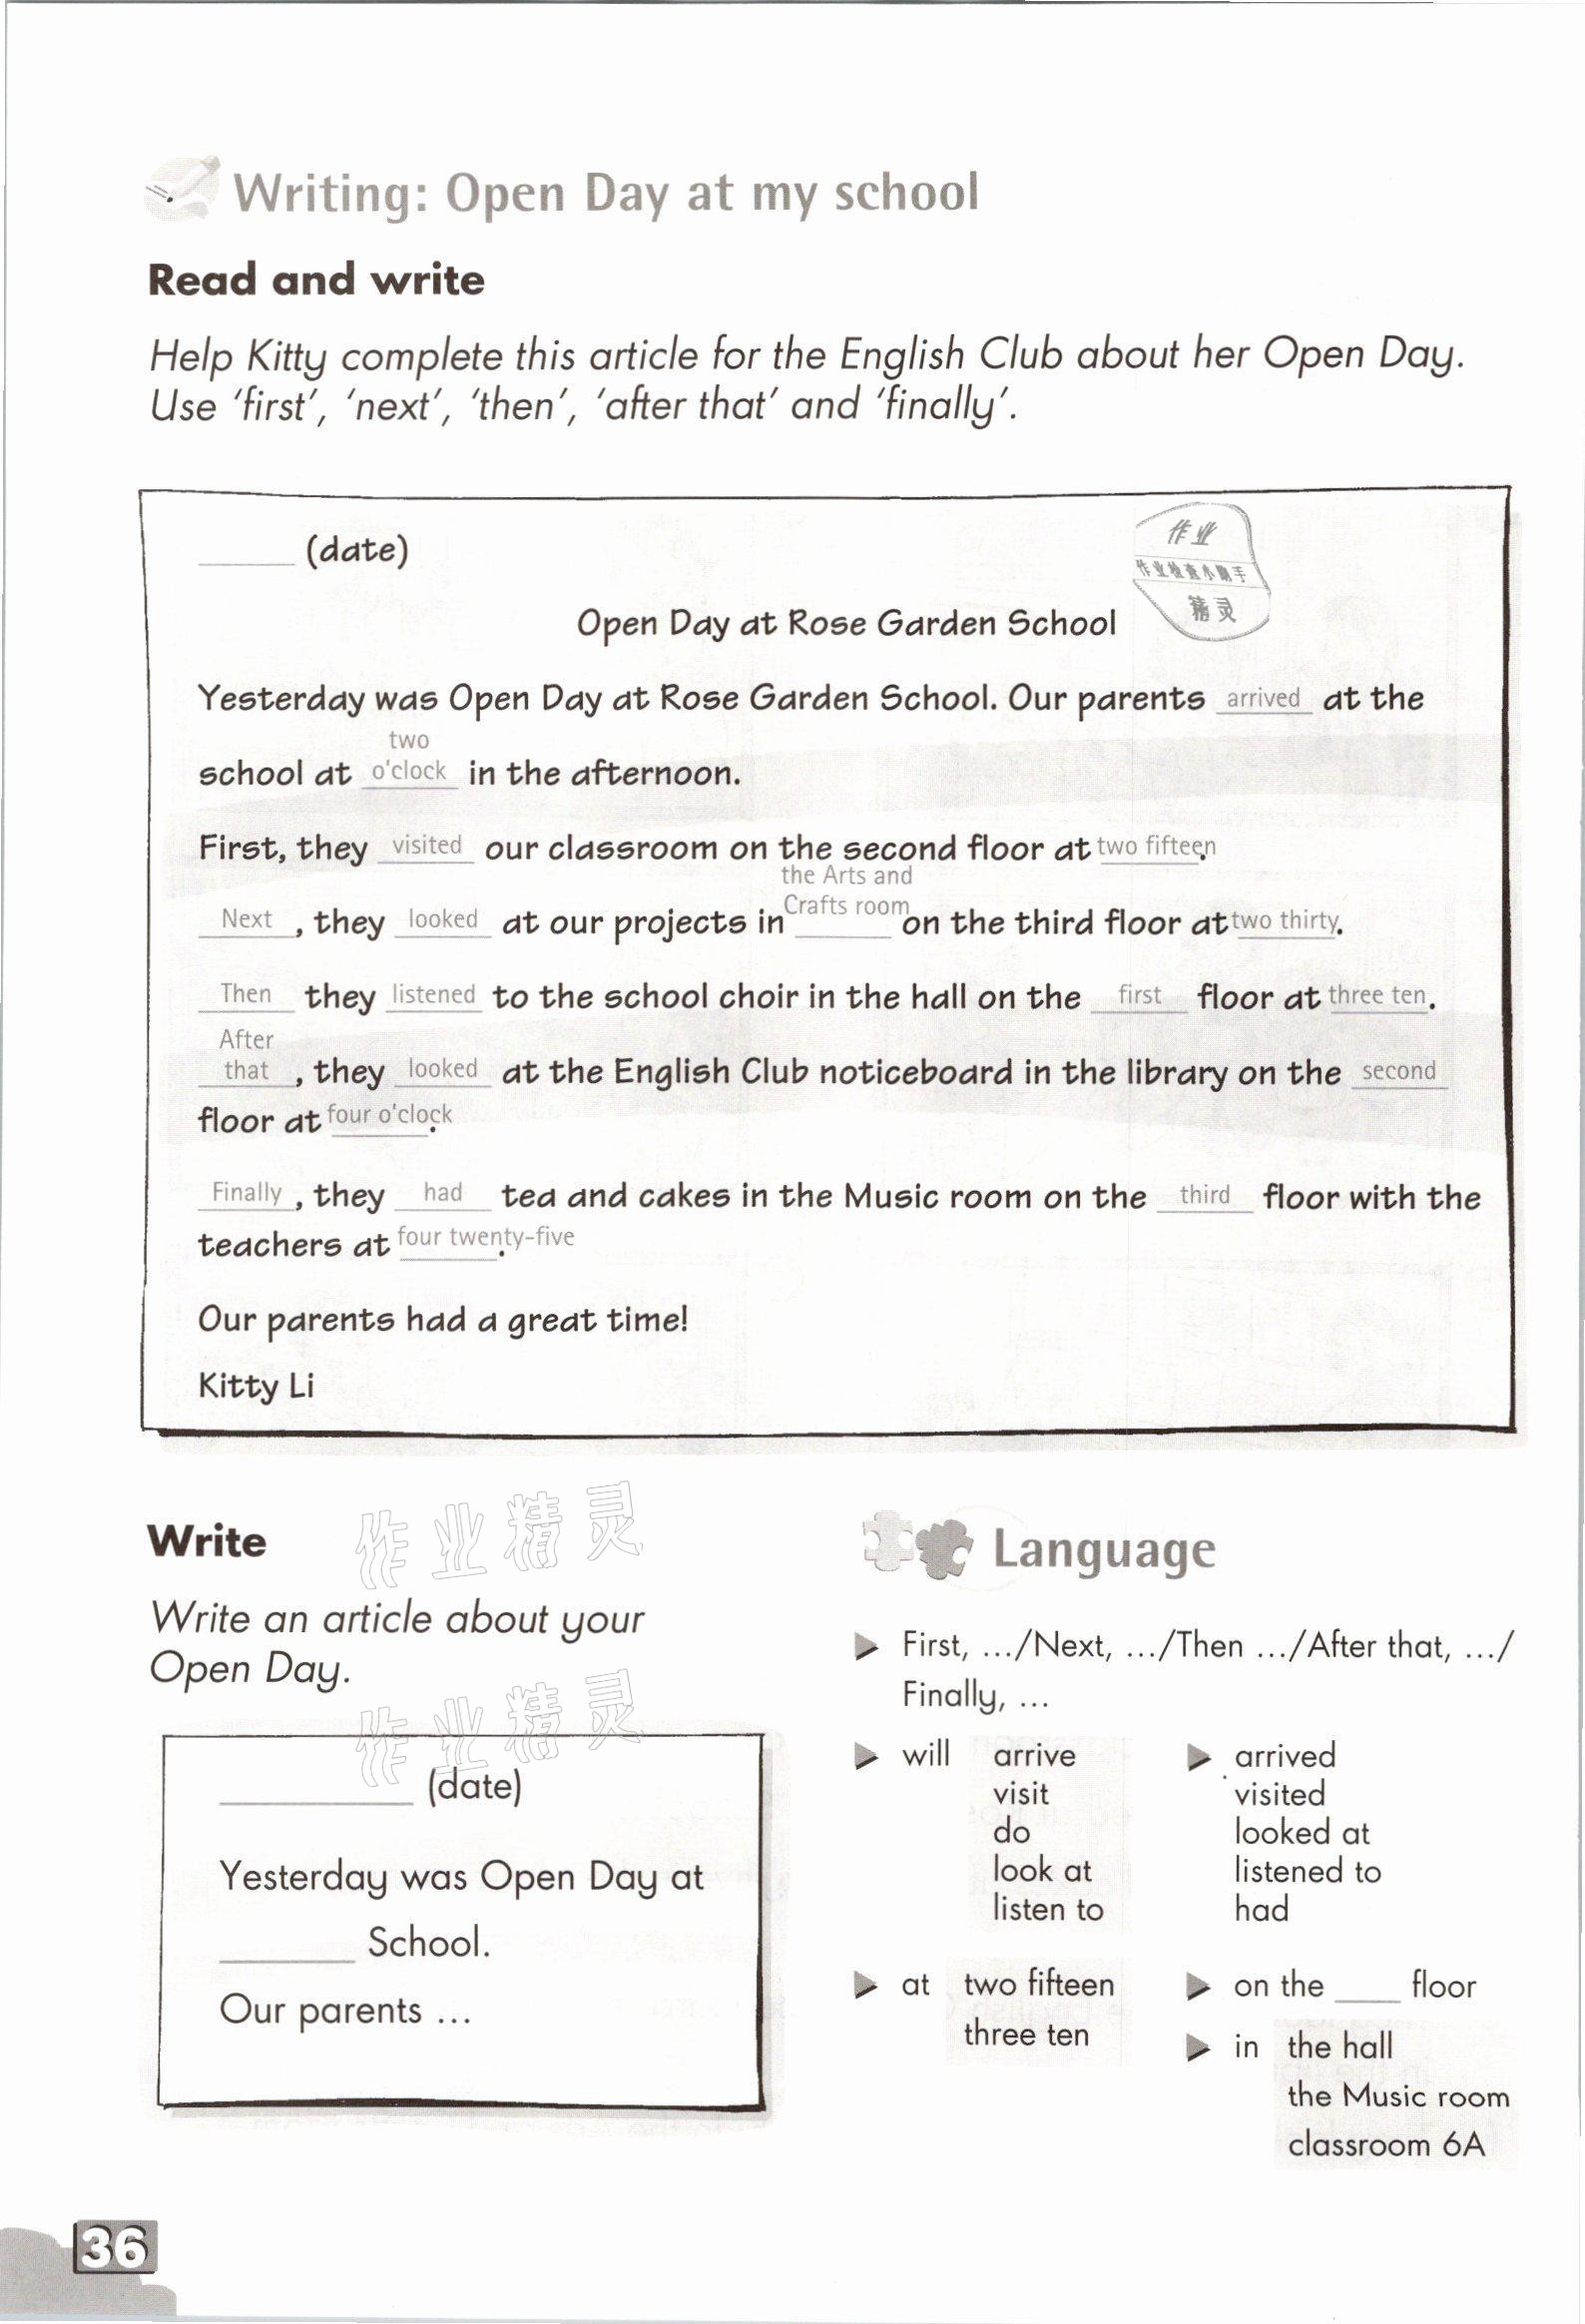 Writing: Open Day at my school
Read and write
Help Kitty complete this article for the English Club about her Open Day.
Use 'first', 'next', 'then', 'after that' and 'finally'.
______ (date)
作业
作业检查小助手
精灵
Open Day at Rose Garden School
Yesterday was Open Day at Rose Garden School. Our parents arrived at the
two
school at o'clock in the afternoon.
First, they visited our classroom on the second floor at two fifteen.
the Arts and
Next, they looked at our projects in Crafts room on the third floor at two thirty.
Then they listened to the school choir in the hall on the first floor at three ten.
After
that, they looked at the English Club noticeboard in the library on the second
floor at four o'clock.
Finally, they had tea and cakes in the Music room on the third floor with the
teachers at four twenty-five.
Our parents had a great time!
Kitty Li
Write
作业精灵
Write an article about your
Open Day.
作业精灵
______ (date)
Yesterday was Open Day at
______ School.
Our parents ...
Language
First, .../Next, .../Then .../After that, .../
Finally, ...
will arrive
visit
do
look at
listen to
arrived
visited
looked at
listened to
had
at two fifteen
three ten
on the ____ floor
in the hall
the Music room
classroom 6A
36